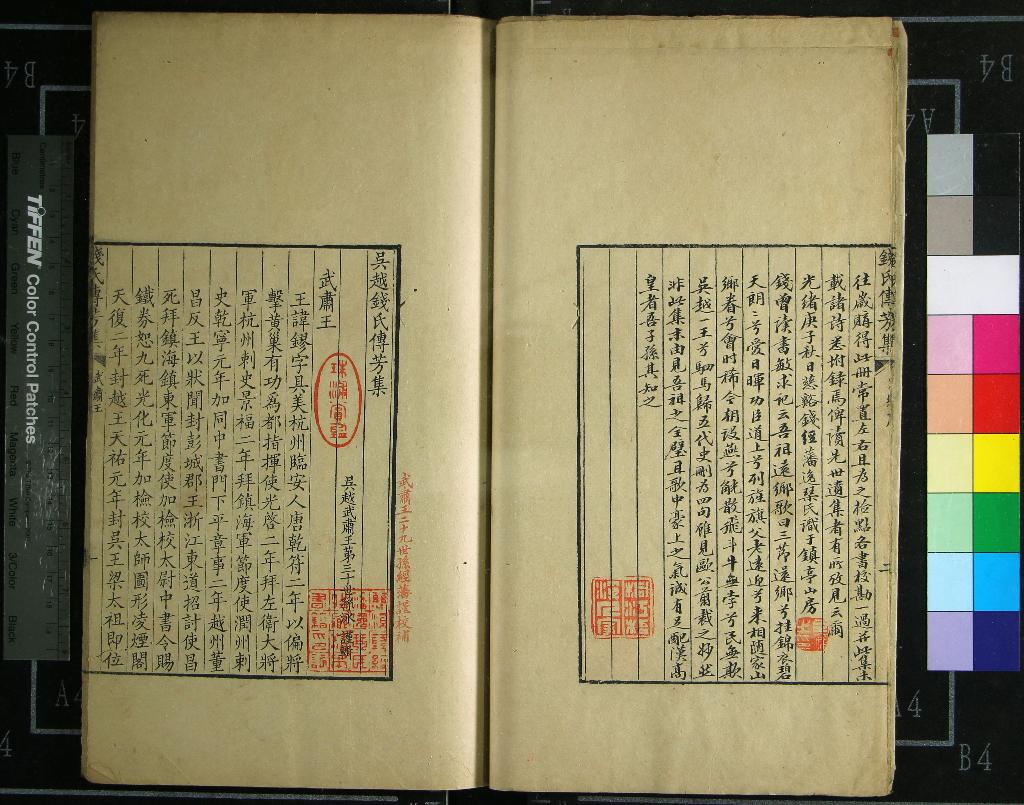 往歲購得此冊常置左右且為之檢點各書校勘一過並此集未
載諸詩悉附錄焉俾讀先世遺集者有所攷見云爾
光緒庚子秋日慈谿錢經藩逸琴氏識于鎮亭山房
錢曾讀書敏求記云吾祖還鄉歌曰三節還鄉兮挂錦衣碧
天朗〻兮愛日暉功臣道上兮列旌旗父老遠迎兮來相隨家山
鄉眷兮會時稀今朝設燕兮觥散飛斗牛無孛兮民無欺
吳越一王兮駟馬歸五代史刪為四句雖見歐公
非此集未由見吾祖之全璧且歌中豪上之氣誠有足配漢高
皇者吾子孫其知之
錢氏傳芳集
吳越錢氏傳芳集
武肅王二十九世孫經藩謹校補
吳越武肅王第三十世孫
武肅王
王諱鏐字具美杭州臨安人唐乾符二年以偏將
擊黃巢有功為都指揮使光啓二年拜左衛大將
軍杭州刺史景福二年拜鎮海軍節度使潤州刺
史乾寧元年加同中書門下平章事二年越州董
昌反王以狀聞封彭城郡王浙江東道招討使昌
死拜鎮海鎮東軍節度使加檢校太尉中書令賜
鐵券恕九死光化元年加檢校太師圖形凌煙閣
天復二年封越王天祐元年封吳王梁太祖即位
錢氏傳芳集
武肅王
一
TIFFEN Color Control Patches
Blue
Cyan
Green
Yellow
Red
Magenta
White
3/Color
Black
Centimetres
B4
B4
A4
A4
B4